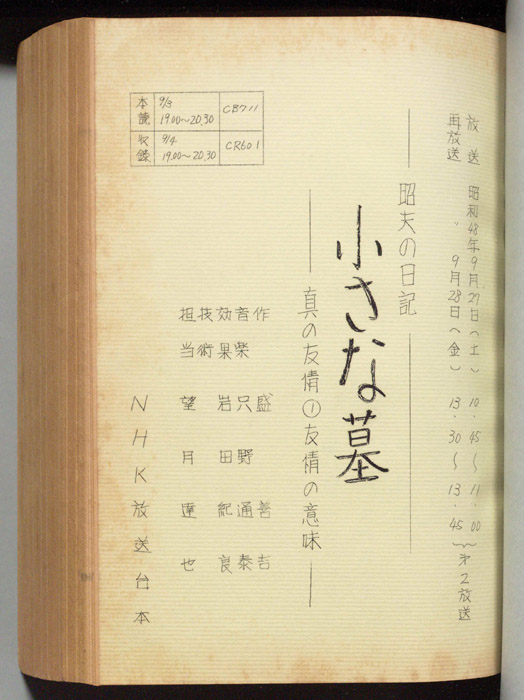 放送 昭和48年9月22日(土) 10.45～11.00 第2放送
再放送 〃 9月28日(金) 13.30～13.45
昭夫の日記
小さな墓
真の友情①友情の意味
作 盛 善吉
音楽 只野通泰
効果 岩田紀良
技術
担当 望月達也
NHK放送台本
本読 9/3 19.00～20.30 CB711
収録 9/4 19.00～20.30 CR601